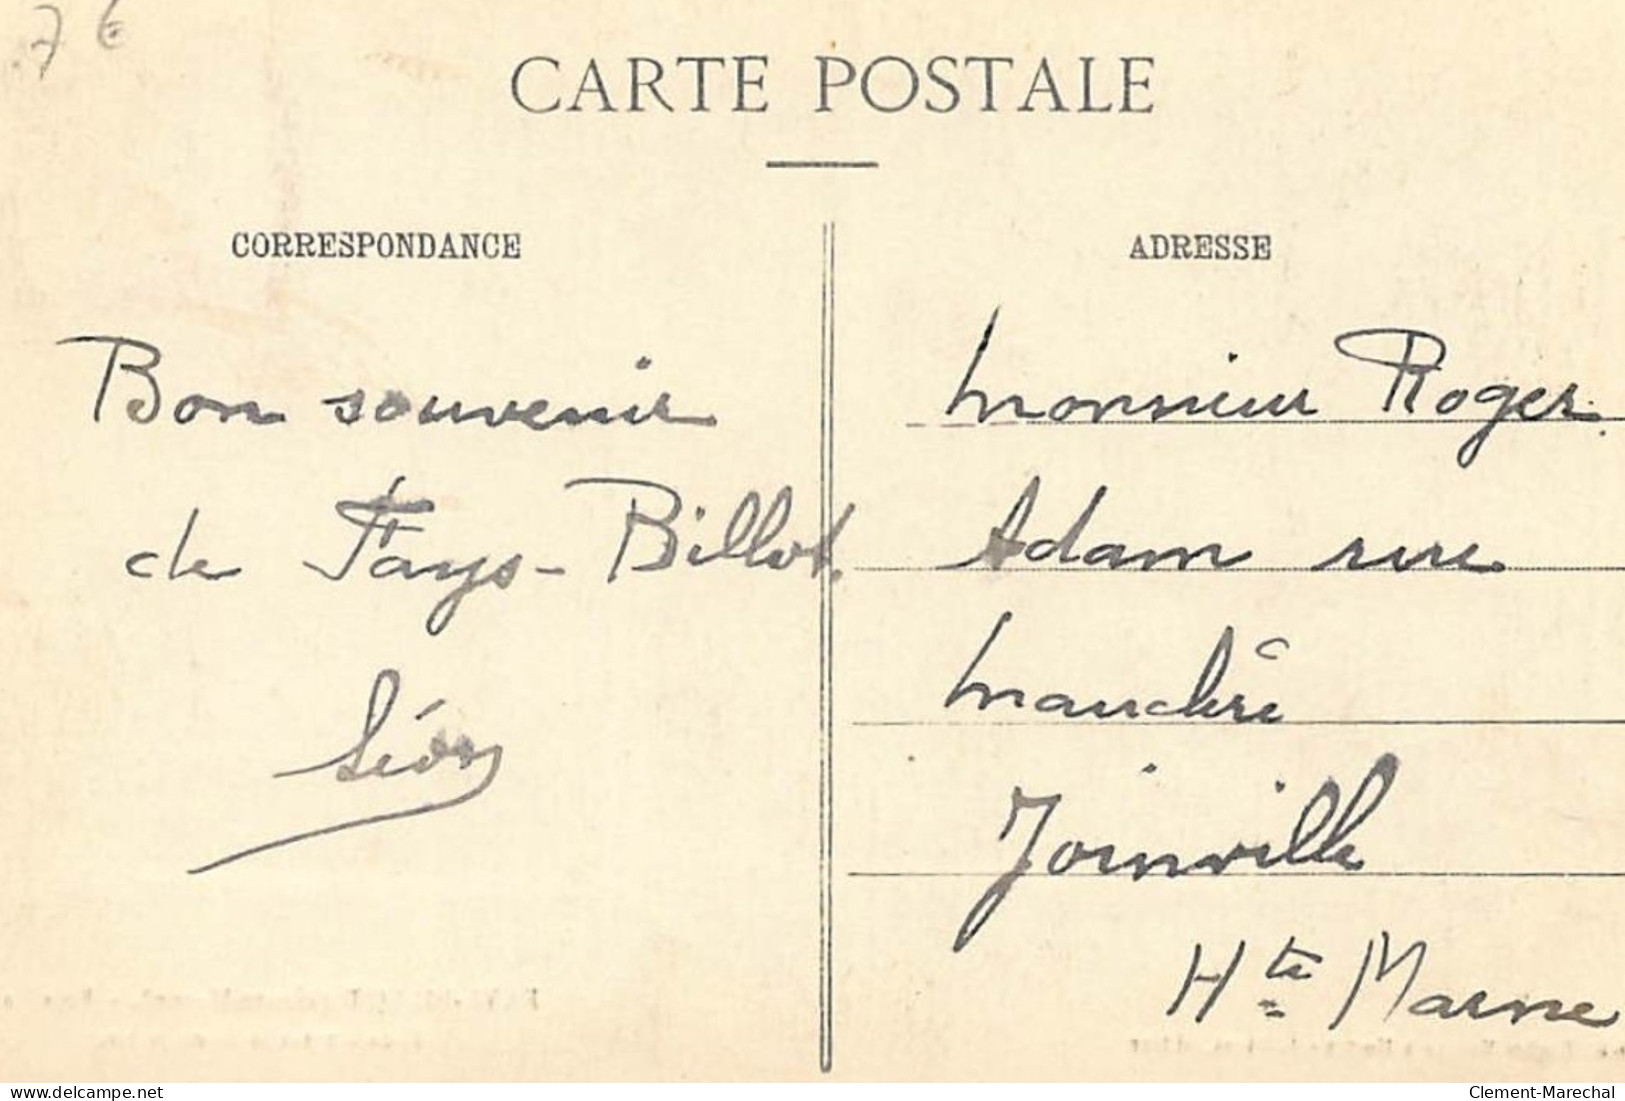 7 €
CARTE POSTALE
CORRESPONDANCE
Bon souvenir
de Fays-Billot.
Léon
ADRESSE
Monsieur Roger
Adam rue
Joinville
Hte Marne
Clement-Marechal